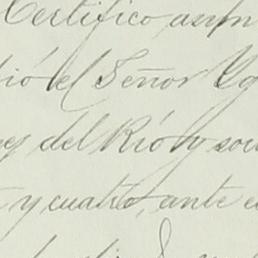 Certifico asim
dió el Señor Ig
ey del Río y soc
y cuatro, ante e